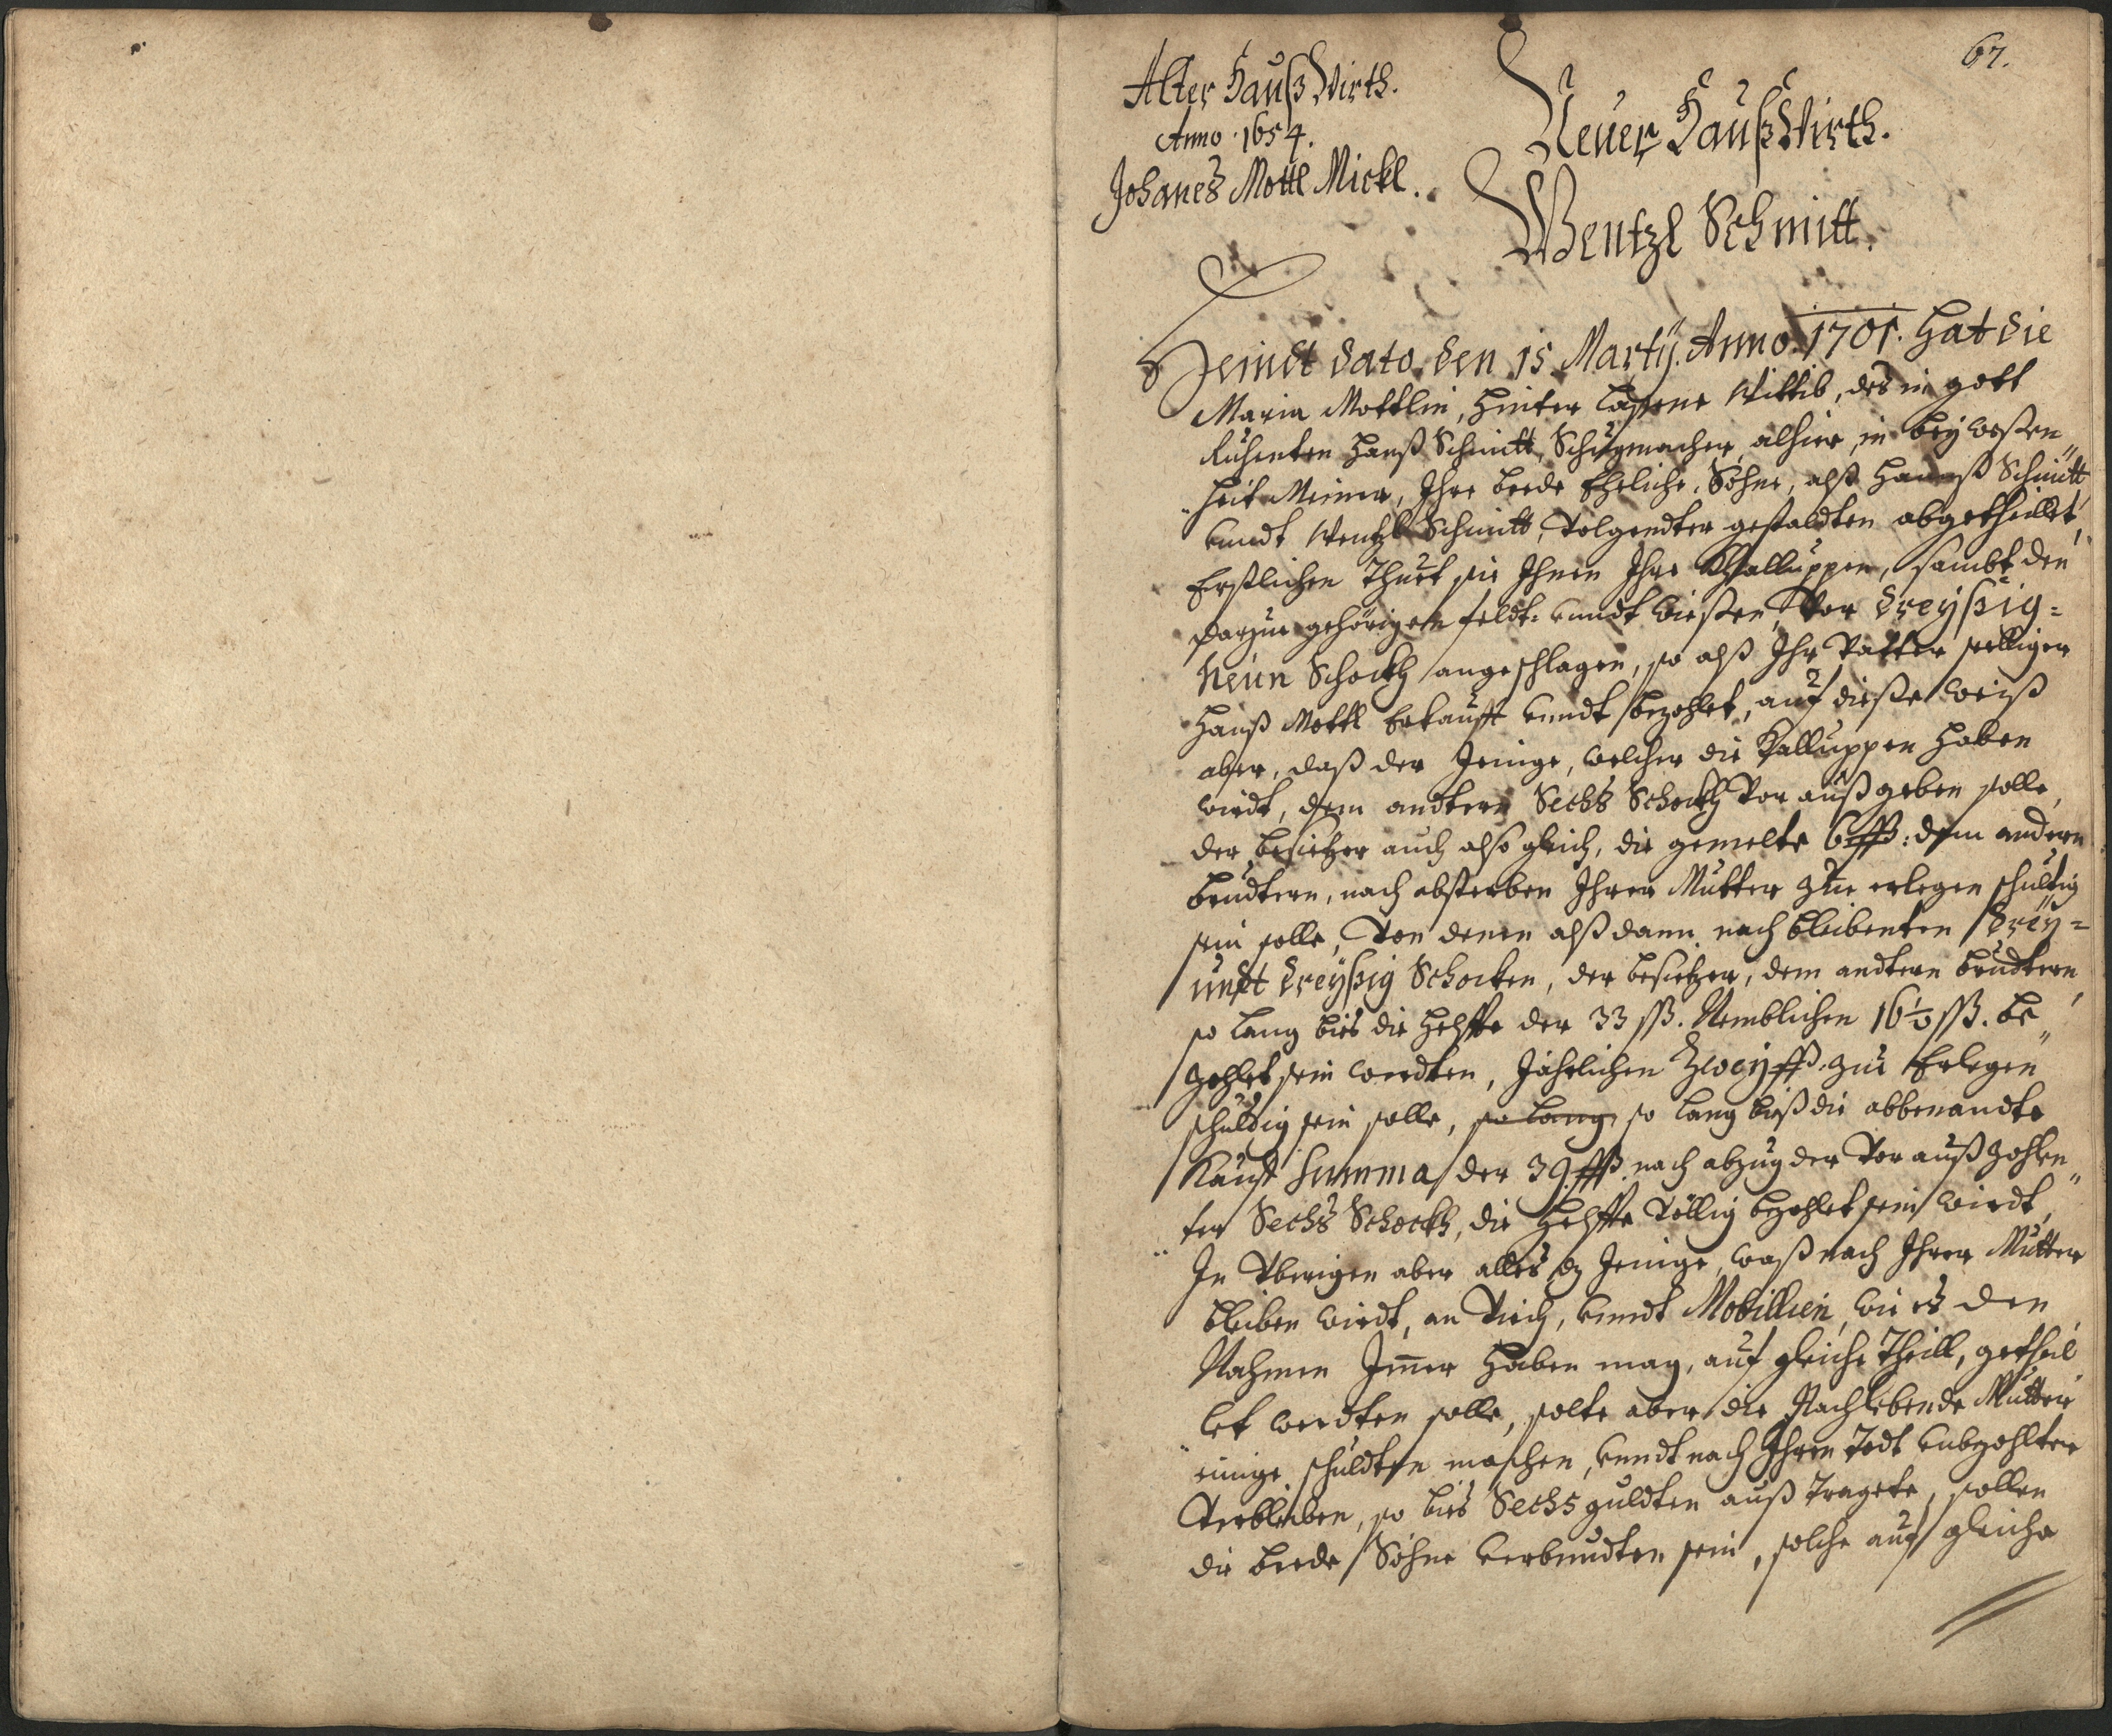 67.
Alter Hauß Wirth.
Anno 1654.
Johanes Mottl Mickl.
Neuer Hauß Wirth.
Wentzl Schmitt.
Heindt dato den 15 Martÿ. Anno 1701. hat die
Maria Mottlin, hinter laßene Wittib, des in gott
Ruhenten Hanß Schmitt, Schugmacher alhier, in beÿ weßen„
„heit Meiner, Ihre beede Eheliche Söhne, alß Hanß Schmitt
vundt Wentzl Schmitt, Volgendter gestaldten abgetheillet,
Erstlichen Thuet sie Ihnen Ihre Challuppen, sambt den
darzue gehörigen feldt= vundt wießen, Vor dreÿßig=
Neün Schockh angeschlagen, so alß Ihr Vatter seelliger
Hanß Mottl Erkaufft vundt bezohlet, auf dieße weiß
aber, daß der Jenige, welcher die Kalluppen haben
wirdt, dem andtern Sechs Schockh Vor auß geben solle,
der besitzer auch also gleich, die gemelte 6 ßß: dem andern
brudtern, nach absterben Ihrer Mutter zue erlegen schuldig
sein solle, Von denen alß dann nach bleibenten dreÿ=
undt dreÿßig Schocken, der besitzer, dem andtern brudtern,
so lang bies die helffte der 33 ßß. Nemblichen 16½ ßß. be„
zohlet sein werdten, Jährlichen Zweÿ ßß. zue Erlegen
schuldig sein solle, so lang so lang bieß die abbenandte
Kauff Summa der 39 ßß. nach abzug der Vor auß zohlen„
„ter Sechs Schockh, die helffte Völlig bezohlet sein wirdt,
In Vberigen aber alles dz Jenige, waß nach Ihrer Mutter
bleiben wirdt, an Viech, vundt Mobillien, wie es den
Nahmen Imer haben mag, auf gleiche Theill, getheil„
„let werdten solle, solte aber die Nachlebende Mutter
einige schuldten machen, vundt nach Ihren Todt vnbezohlter
Verbleiben, so bies Sechs guldten auß tragete, sollen
die beede Söhne verbundten sein, solche auf gleiche